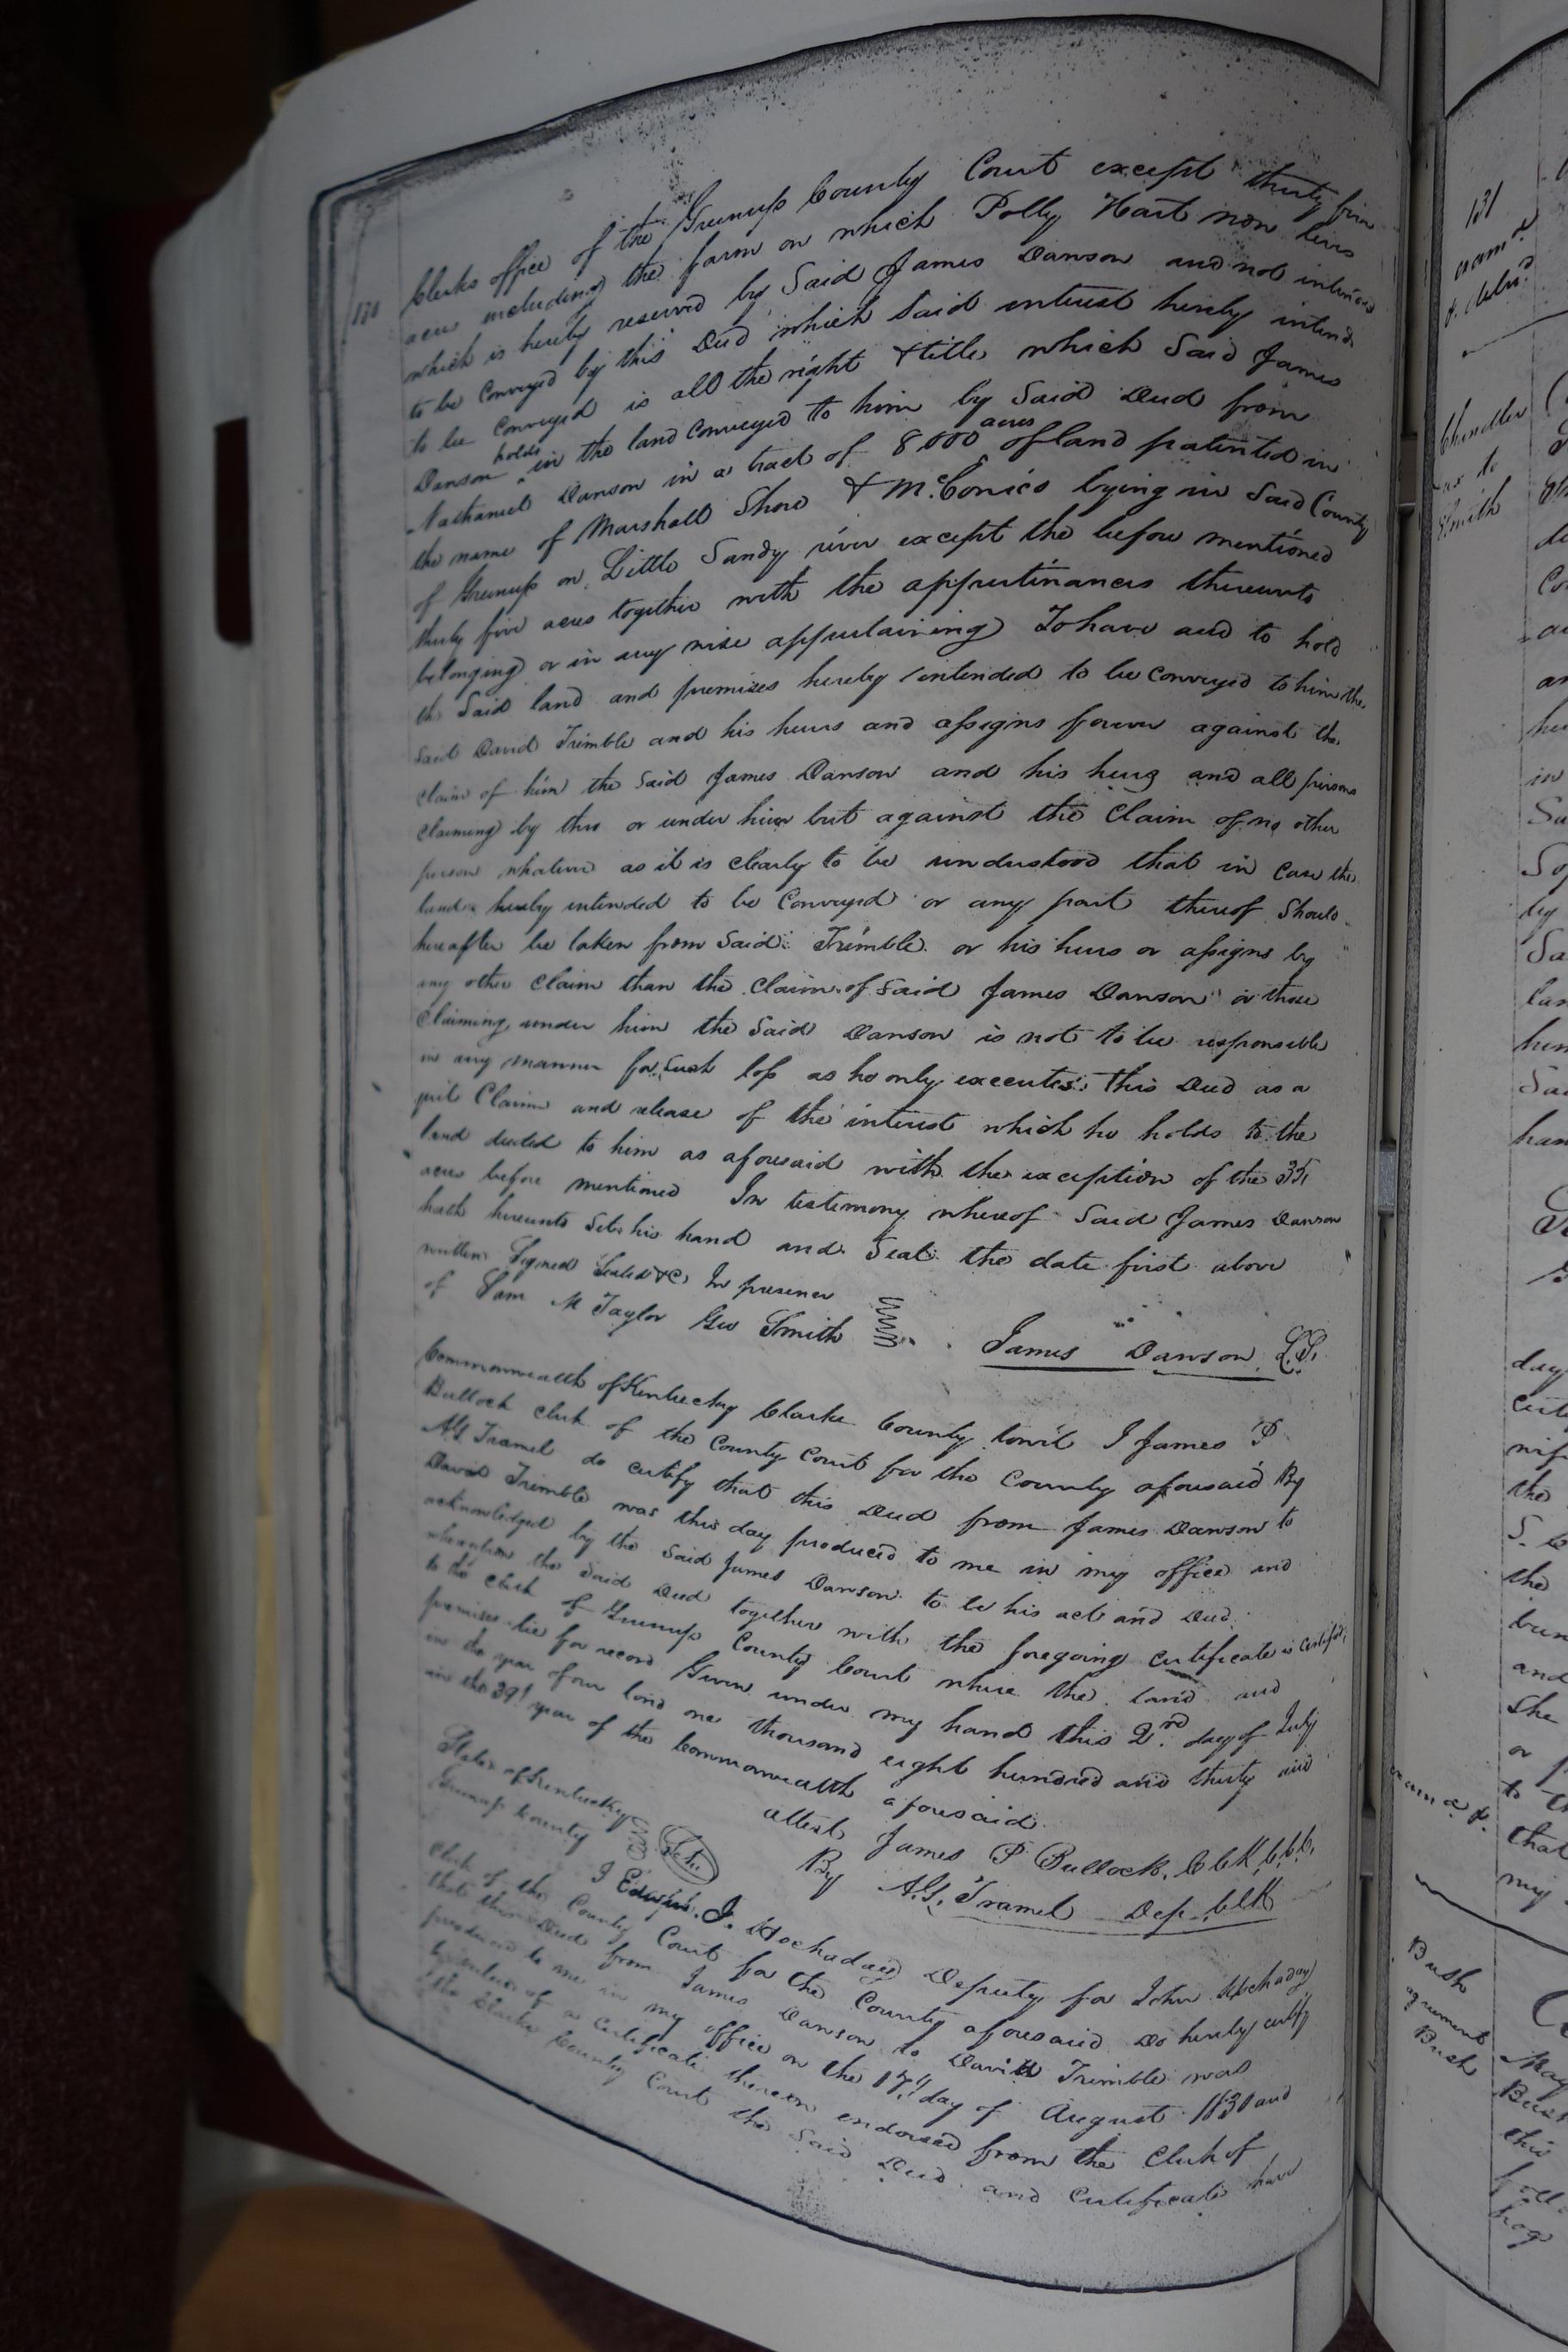 130
Clerks office of the Greenup County Court except thirty five
acres including the farm on which Polly Hart now lives
which is hereby reserved by Said James Dawson and not intended
to be Conveyed by this Deed which Said interest hereby intend
to be Conveyed is all the right & title which Said James
Dawson holds in the land Conveyed to him by Said Deed from
Nathaniel Dawson in a tract of 8,000 acres of land patented in
the name of Marshall Shore & McConico lying in Said County
of Greenup on Little Sandy river except the before mentioned
thirty five acres together with the appurtinances thereunto
belonging or in any wise appurtaining To have and to hold
the Said land and premises hereby intended to be Conveyed to him the
Said David Trimble and his heirs and assigns forever against the
claim of him the Said James Dawson and his heirs and all persons
claiming by thro or under him but against the Claim of no other
person whatever as it is clearly to be understood that in case the
land hereby intended to be Conveyed or any part thereof Should
hereafter be taken from Said Trimble or his heirs or assigns by
any other Claim than the Claim of Said James Dawson or those
Claiming under him the Said Dawson is not to be responsible
in any manner for such loss as he only executes this Deed as a
quit Claim and release of the interest which he holds to the
land deeded to him as aforesaid with the exception of the 35
acres before mentioned In testimony whereof Said James Dawson
hath hereunto Set his hand and Seal the date first above
written Signed Sealed &c In presence
of Sam M Taylor Geo Smith
James Dawson L.S.
Commonwealth of Kentucky Clarke County towit I James P
Bullock clerk of the County Court for the County aforesaid By
A.G. Tramel do certify that this Deed from James Dawson to
David Trimble was this day produced to me in my office and
acknowledged by the Said James Dawson to be his act and Deed
whereupon the Said Deed together with the foregoing Certificate is Certified
to the clerk of Greenup County Court where the land and
premises lie for record Given under my hand this 2nd day of July
in the year of our lord one thousand eight hundred and thirty and
in the 39th year of the Commonwealth aforesaid
attest James P Bullock, Clk C.C.C.
By A.G. Tramel Dep. Clk
State of Kentucky
Greenup County Sct.
I Edwin J. Hockaday Deputy for John Hockaday
Clerk of the County Court for the County aforesaid Do hereby certify
that this Deed from James Dawson to David Trimble was
produced to me in my office on the 17th day of August 1830 and
by virtue of a certificate thereon endorsed from the Clerk of
the Clarke County Court the Said Deed and Certificate have
131
Exam.d
& delv.d
Chandler
to
Smith
Bush
agreement
Bush